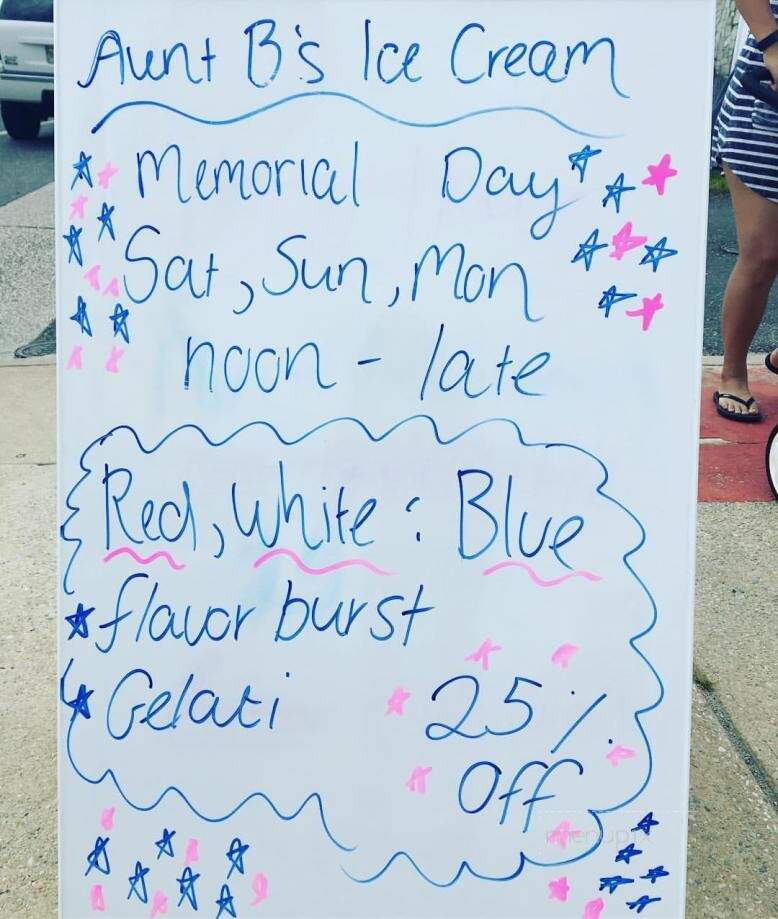 Aunt B's Ice Cream
Memorial Day
Sat, Sun, Mon
noon - late
Red, White : Blue
flavor burst
Gelati
25%
Off
menupix